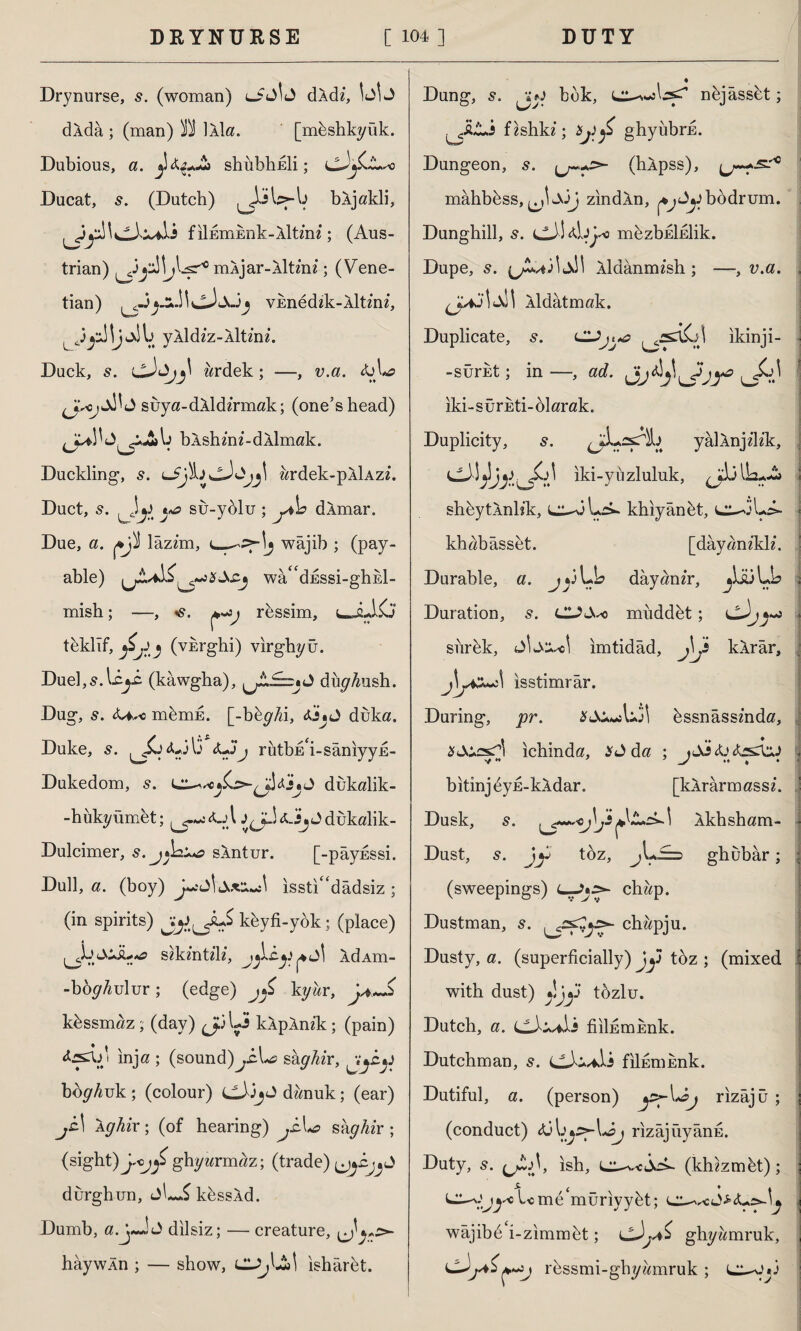 DRYNURSE [ 104 ] DUTY
Drynurse, s. (woman) دادی dÀdi, دادا
dÀdà ; (man) لالا lÀla. [mèshkyūk.
Dubious, a. شبهه‌لی shùbhᴇli ; مشكوك
Ducat, s. (Dutch) باجاقلی bÀjakli,
فلمنك آلتونی fìlᴇmᴇnk-Àltini ; (Aus-
trian) ماجار آلتونی mÀjar-Àltini ; (Vene-
tian) ونديك آلتونی vᴇnédik-Àltini,
يالديز آلتونی yÀldiz-Àltini.
Duck, s. اوردك urdek ; —, v.a. صويه
دالديرمق sùya-dÀldirmak ; (one's head)
باشنی دالمق bÀshini-dÀlmak.
Duckling, s. اوردك پالازی urdek-pÀlAzi.
Duct, s. صو يولی sù-yòlu ; طمر dÀmar.
Due, a. لازم lāzim, واجب wājib ; (pay-
able) وعده‌سی كلمش wà“dᴇssi-ghᴇl-
mish ; —, s. رسم rèssim, تكليف
tèklīf, ويركو (vᴇrghi) vìrghyū.
Duel, s. غوغا (kàwgha), دوكش dùghush.
Dug, s. ممه mèmᴇ. [-bèghi, دوقه dùka.
Duke, s. رتبهٔ ثانيه بكی rùtbᴇ‘i-sāniyyᴇ-
Dukedom, s. دوقه‌لق حكومت dùkalik-
-hùkyūmèt ; دوقه‌لق پايه‌سی dùkalik-
Dulcimer, s. صنطور sÀntur. [-pāyᴇssi.
Dull, a. (boy) استعدادسز ìsstì“dādsiz ;
(in spirits) كيفی يوق kèyfi-yòk ; (place)
صقندیلی sikintili, آدم بوغولور ÀdAm-
-bòghulur ; (edge) كور kyùr, كسمز
kèssmàz ; (day) قپانق kÀpÀnik ; (pain)
اينجه ìnja ; (sound) صاغر sàghir, بوغوق
bòghuk ; (colour) دونوك dunuk ; (ear)
آغر Àghir ; (of hearing) صاغر sàghir ;
(sight) كورمز ghyurmàz ; (trade) دورغون
dùrghun, كساد kèssÀd.
Dumb, a. دلسز dìlsiz ; — creature, حيوان
hàywÀn ; — show, اشارت ìshārèt.
Dung, s. بوق bòk, نجاست nèjāssèt ;
فشقی fishki ; كوبره ghyùbrᴇ.
Dungeon, s. حبس (hÀpss), محبس
màhbèss, زندان zìndÀn, بودرم bòdrum.
Dunghill, s. مزبله‌لك mèzbᴇlᴇlik.
Dupe, s. آلدانمش Àldànmish ; —, v.a.
آلداتمق Àldàtmak.
Duplicate, s. ايكنجی صورت ìkinji-
-sūrᴇt ; in —, ad. ايكی صورتی اوله‌رق
ìki-sūrᴇti-òlarak.
Duplicity, s. يالانجيلق yàlÀnjilik,
ايكی يوزلولك ìki-yùzluluk, شيطانلق
shèytÀnlik, خيانت khìyānèt, خباثت
khabāssèt. [dàyànikli.
Durable, a. طيانير dàyànir, طيانقلی
Duration, s. مدت mùddèt ; سورك
sùrèk, امتداد ìmtidād, قرار kÀrār,
استمرار ìsstimrār.
During, pr. اثناسنده èssnāssinda,
ايچنده ìchinda, ده da ; بتنجه‌يه قدر
bìtinjéyᴇ-kÀdar. [kÀràrmassi.
Dusk, s. آخشام قرارمه‌سی Àkhsham-
Dust, s. توز tòz, غبار ghùbār ;
(sweepings) چوپ chup.
Dustman, s. چوپجی chupju.
Dusty, a. (superficially) توز tòz ; (mixed
with dust) توزلو tòzlu.
Dutch, a. فلمنك fìlᴇmᴇnk.
Dutchman, s. فلمنك fìlᴇmᴇnk.
Dutiful, a. (person) رضاجو rìzājū ;
(conduct) رضاجويانه rìzājūyānᴇ.
Duty, s. ايش ìsh, خدمت (khizmèt) ;
مأموريت mé‘mūrìyyèt ; واجبهٔ ذمت
wājibé‘i-zìmmèt ; كومرك ghyumruk,
رسم كومرك rèssmi-ghyumruk ; نوبت